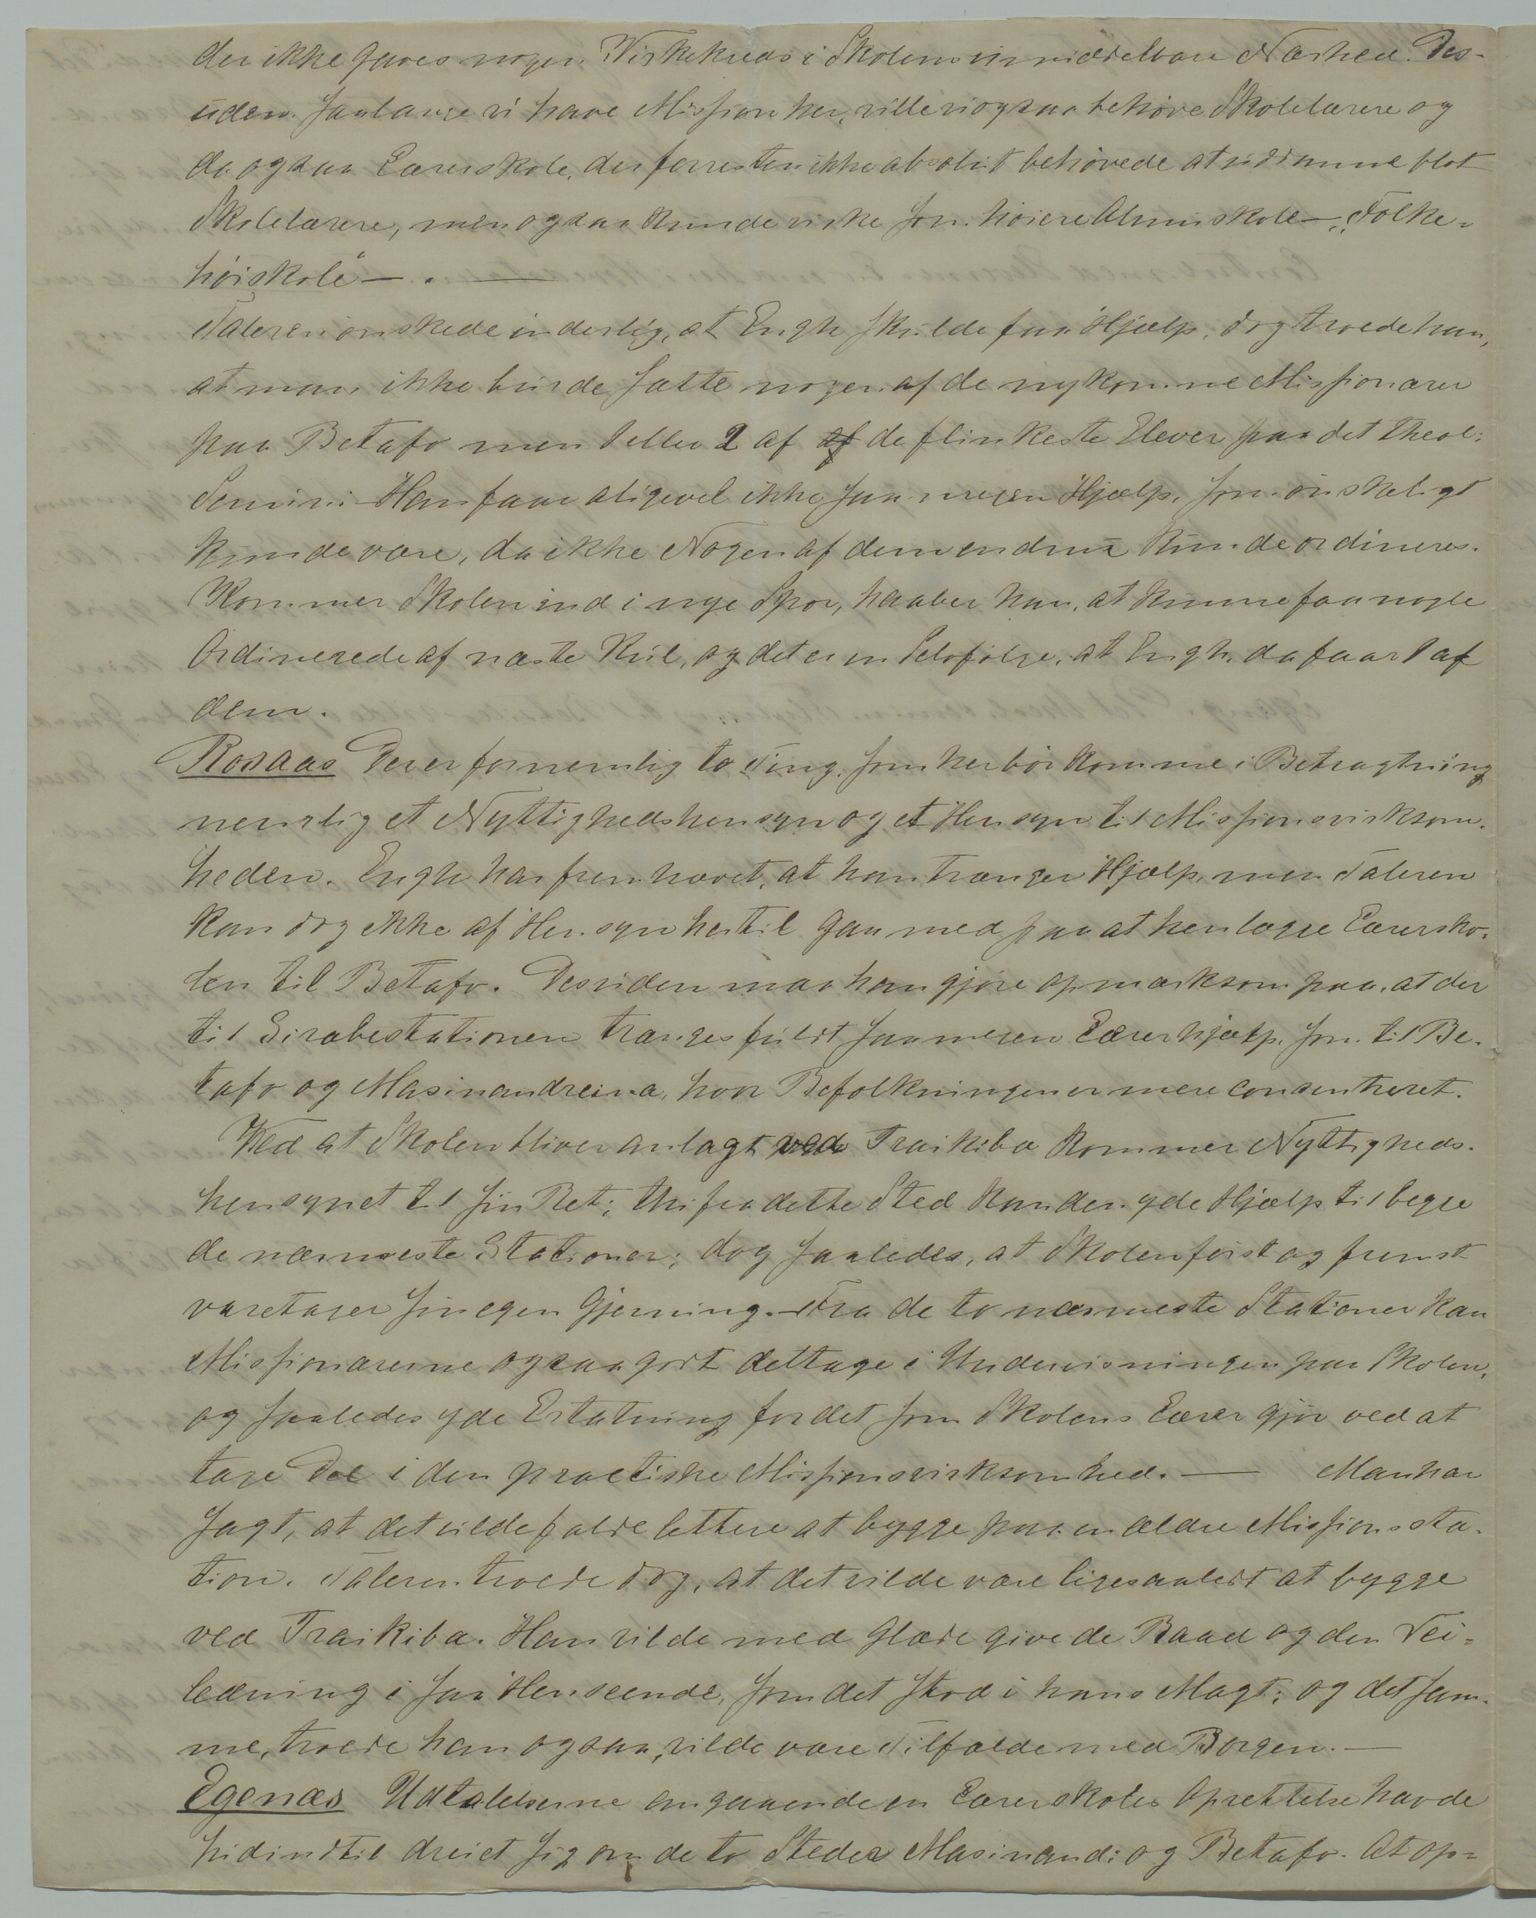 der ikke gaves nogen Virkekreds i Skolens umiddelbare Nærhed. Des-
uden. Saalænge vi have Mission her, ville vi ogsaa behøve Skolelærere og
da ogsaa Lærerskole, der forresten ikke absolut behøvede at uddanne blot
Skolelærere, men ogsaa kunde virke som høiere Almuskole —, "Folke-
høiskole" — . —
Taleren ønskede inderlig, at Engh skulde faa Hjælp, dog troede han,
at man ikke burde sætte nogen af de nykomne Missionærer
paa Betafo men 1 eller 2 af de flinkeste Elever paa det theol:
Semini. Han faar aligevel ikke saa megen Hjælp, som ønskeligt
kunde være, da ikke Nogen af dem endnu kunde ordineres.
Kommer Skolen ind i nye Spor, haaber han, at kunne faa nogle
Ordinerede af næste Kul, og det er en Selvfølge, at Engh da faar 1 af
dem.
Rosaas Der er fornemlig to Ting, som her bør komme i Betragtning
nemlig et Nyttighedshensyn og et Hensyn til Missionsvirksom-
heden. Engh har fremhævet, at han trænger Hjælp, men Taleren
kan dog ikke af Hensyn hertil gaa med paa at henlægge Lærersko-
len til Betafo. Desuden maa han gjøre opmærksom paa, at der
til Sirabestationen trænges fuldt saa megen Lærerhjælp, som til Be-
tafo og Masinandreina, hvor Befolkningen er mere consentreret.
Ved at Skolen bliver anlagt ved Traikiba kommer Nyttigheds-
hensynet til sin Ret; thi fra dette Sted kan den yde Hjælp til begge
de nærmeste Stationer; dog saaledes, at Skolen først og fremst
varetager sin egen Gjerning. Fra de to nærmeste Stationer kan
Missionærerne ogsaa godt deltage i Undervisningen paa Skolen,
og saaledes yde Erstatning for det som Skolens Lærer gjør ved at
tage Del i den practiske Missionsvirksomhed. — Man har
sagt, at det vilde falde lettere at bygge paa en ældre Missionssta-
tion. Taleren troede dog, at det vilde være ligesaa let at bygge
ved Traikiba. Han vilde med Glæde give de Raad og den Vei-
ledning i saa Henseende, som det stod i hans Magt; og det sam-
me, troede han ogsaa, vilde være Tilfælde med Borgen. —
Egenæs Udtalelserne angaaende en Lærerskoles Oprettelse havde
hidindtil dreiet sig om de to Steder Masinandi og Betafo. At op-